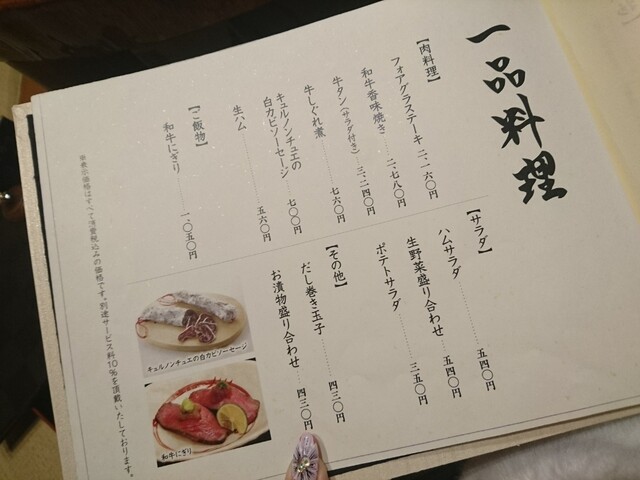 一品料理
【肉料理】
フォアグラステーキ 二、一六〇円
和牛香味焼き 二、七八〇円
牛タン(サラダ付き) 三、二四〇円
牛しぐれ煮 七六〇円
キュルノンチュエの
白カビソーセージ 七〇〇円
生ハム 五六〇円
【ご飯物】
和牛にぎり 一、〇五〇円
【サラダ】
ハムサラダ 五四〇円
生野菜盛り合わせ 五四〇円
ポテトサラダ 三五〇円
【その他】
だし巻き玉子 四三〇円
お漬物盛り合わせ 四三〇円
キュルノンチュエの白カビソーセージ
和牛にぎり
※表示価格はすべて消費税込みの価格です。別途サービス料10%を頂戴いたしております。